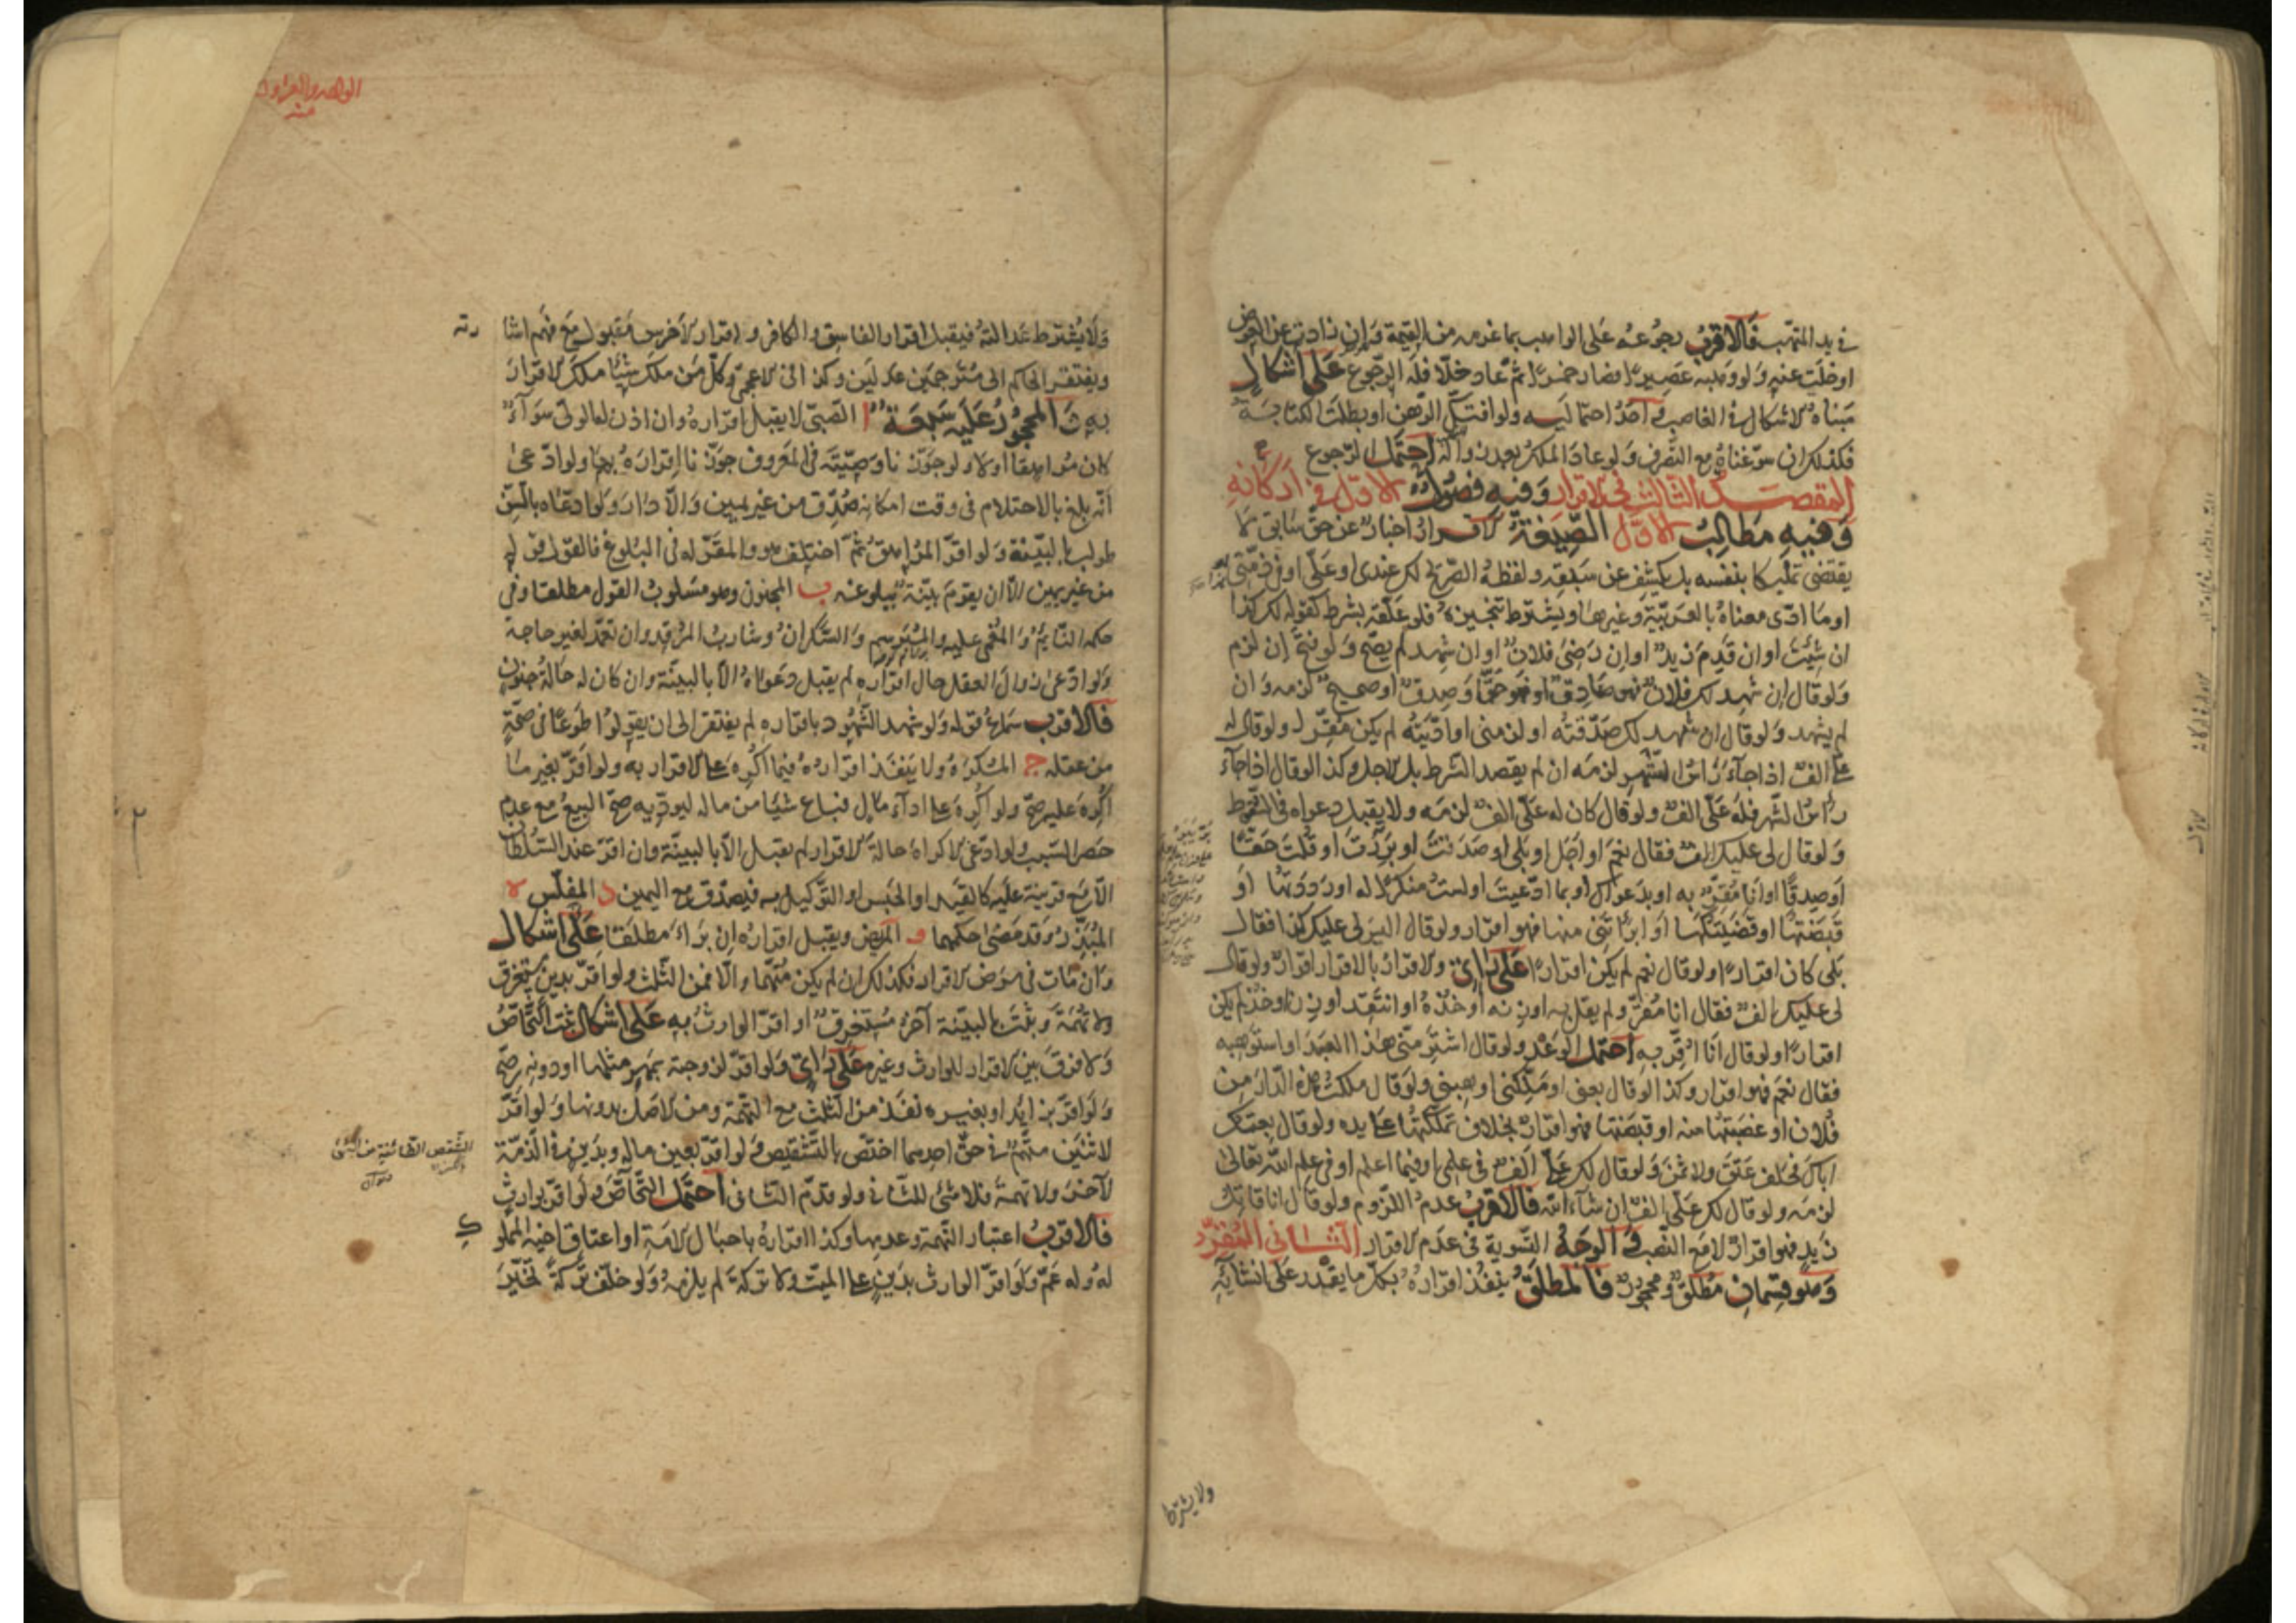 في يد المتهب فالاقرب رجوعه على الواهب بما غرمه من القيمة وان زادت عن العوض
او خلت عنه ولو وهبه عصيرا فصار خمرا ثم عاد خلا فله الرجوع على اشكال
مبناه الاشكال في الغاصب واحد احتماليه ولو افتك الرهن او بطلت الكتابة
فكذلك ان سوغناه مع التصرف ولو عاد الملك بعد زواله احتمل الرجوع
المقصد الثالث في الاقرار وفيه فصول الاول في اركانه
وفيه مطالب الاول الصيغة الاقرار اخبار عن حق سابق لا
يقتضي تمليكا بنفسه بل يكشف عن سبقه ولفظه الصريح لك عندي او علي او في ذمتي هذا
او ما ادى معناه بالعربية وغيرها ويشترط تنجيزه فلو علقه بشرط كقوله لك كذا
ان شئت او ان قدم زيد او ان رضي فلان او ان شهد لم يصح ولو فتح ان لزم
ولو قال ان شهد لك فلان فهو صادق او فهو حق او صدق او صحيح لزمه وان
لم يشهد ولو قال ان شهد لك صدقته او لزمني او اديته لم يكن مقرا ولو قال له
علي الف اذا جاء راس الشهر لزمه ان لم يقصد الشرط بل الاجل وكذا لو قال اذا جاء
راس الشهر فله علي الف ولو قال كان له علي الف لزمه ولا يقبل دعواه في السقوط
ولو قال لي عليك الف فقال نعم او اجل او بلى او صدقت او بررت او قلت حقا
او صدقا او انا مقر به او بدعواك او بما ادعيت او لست منكرا له او رددتها او
قبضتها او قضيتكها او ابراتني منها فهو اقرار ولو قال اليس لي عليك كذا فقال
بلى كان اقرارا ولو قال نعم لم يكن اقرارا على راي والاقرار بالاقرار اقرار ولو قال
لي عليك الف فقال انا مقر ولم يقل به او زنه او خذه او انتقد او زن او خذ لم يكن
اقرارا ولو قال انا اقر به احتمل الوعد ولو قال اشتر مني هذا العبد او استوهبه
فقال نعم فهو اقرار وكذا لو قال بعني او ملكني او هبني ولو قال ملكت هذه الدار من
فلان او غصبتها منه او قبضتها فهو اقرار بخلاف تملكتها على يده ولو قال بعتك
اباك فحلف عتق ولا ثمن ولو قال لك علي الف في علمي او فيما اعلم او في علم الله تعالى
لزمه ولو قال لك علي الف ان شاء الله فالاقرب عدم اللزوم ولو قال انا قاتل
زيد فهو اقرار لا مع النصب والوجه التسوية في عدم الاقرار الثاني المقر
وهو قسمان مطلق ومحجور فالمطلق ينفذ اقراره بكل ما يقدر على انشائه
ولا يشترط
ولا يشترط عدالته فيقبل اقرار الفاسق والكافر واقرار الاخرس مقبول مع فهم اشا
رته
ويفتقر الحاكم الى مترجمين عدلين وكذا في الاعجمي وكل من ملك شيئا ملك الاقرار
به والمحجور عليه سبعة ا الصبي لا يقبل اقراره وان اذن له الولي سواء
كان مراهقا او لا ولو جوزنا وصيته في المعروف جوزنا اقراره بها ولو ادعى
انه بلغ بالاحتلام في وقت امكانه صدق من غير يمين والا دار ولو ادعاه بالسن
طولب بالبينة ولو اقر المراهق ثم اختلف هو والمقر له في البلوغ فالقول قوله
من غير يمين الا ان يقوم بينة ببلوغه ب المجنون وهو مسلوب القول مطلقا وفي
حكمه النائم والمغمى عليه والمبرسم والسكران وشارب المرقد وان تعمد لغير حاجة
ولو ادعى زوال العقل حال اقراره لم يقبل دعواه الا بالبينة وان كان له حالة جنون
فالاقرب سماع قوله ولو شهد الشهود باقراره لم يفتقر الى ان يقولوا طوعا في صحة
من عقله ج المكره ولا ينفذ اقراره فيما اكره على الاقرار به ولو اقر بغير ما
اكره عليه صح ولو اكره على اداء مال فباع شيئا من ماله ليوديه صح البيع مع عدم
حصر السبب ولو ادعى الاكراه حالة الاقرار لم يقبل الا بالبينة وان اقر عند السلطان
الا مع قرينة عليه كالقيد او الحبس او التوكيل به فيصدق مع اليمين د المفلس ه
المبذر وقد مضى حكمهما و المريض ويقبل اقراره ان براء مطلقا على اشكال
وان مات في مرض الاقرار فكذلك ان لم يكن متهما والا فمن الثلث ولو اقر بدين مستغرق
ولا تهمة وثبت بالبينة آخر مستغرق او اقر الوارث به على اشكال ثبت التحاص
ولا فرق بين الاقرار للوارث وغيره على راي ولو اقر لزوجته بمهر مثلها او دونه صح
ولو اقر بزائد او بغيره نفذ من الثلث مع التهمة ومن الاصل بدونها ولو اقر
لاثنين متهم في حق احدهما اختص بالتشقيص ولو اقر بعين ماله وبدين في الذمة
لآخر ولا تهمة فلا شئ للثاني ولو قدم الثاني احتمل التحاص ولو اقر لوارث
فالاقرب اعتبار التهمة وعدمها وكذا اقراره باحبال الامة او اعتاق اخيه المملو
ك
له وله عم ولو اقر الوارث بدين على الميت ولا تركة لم يلزمه ولو خلف تركة تخير
الشقص الطائفة من الشئ